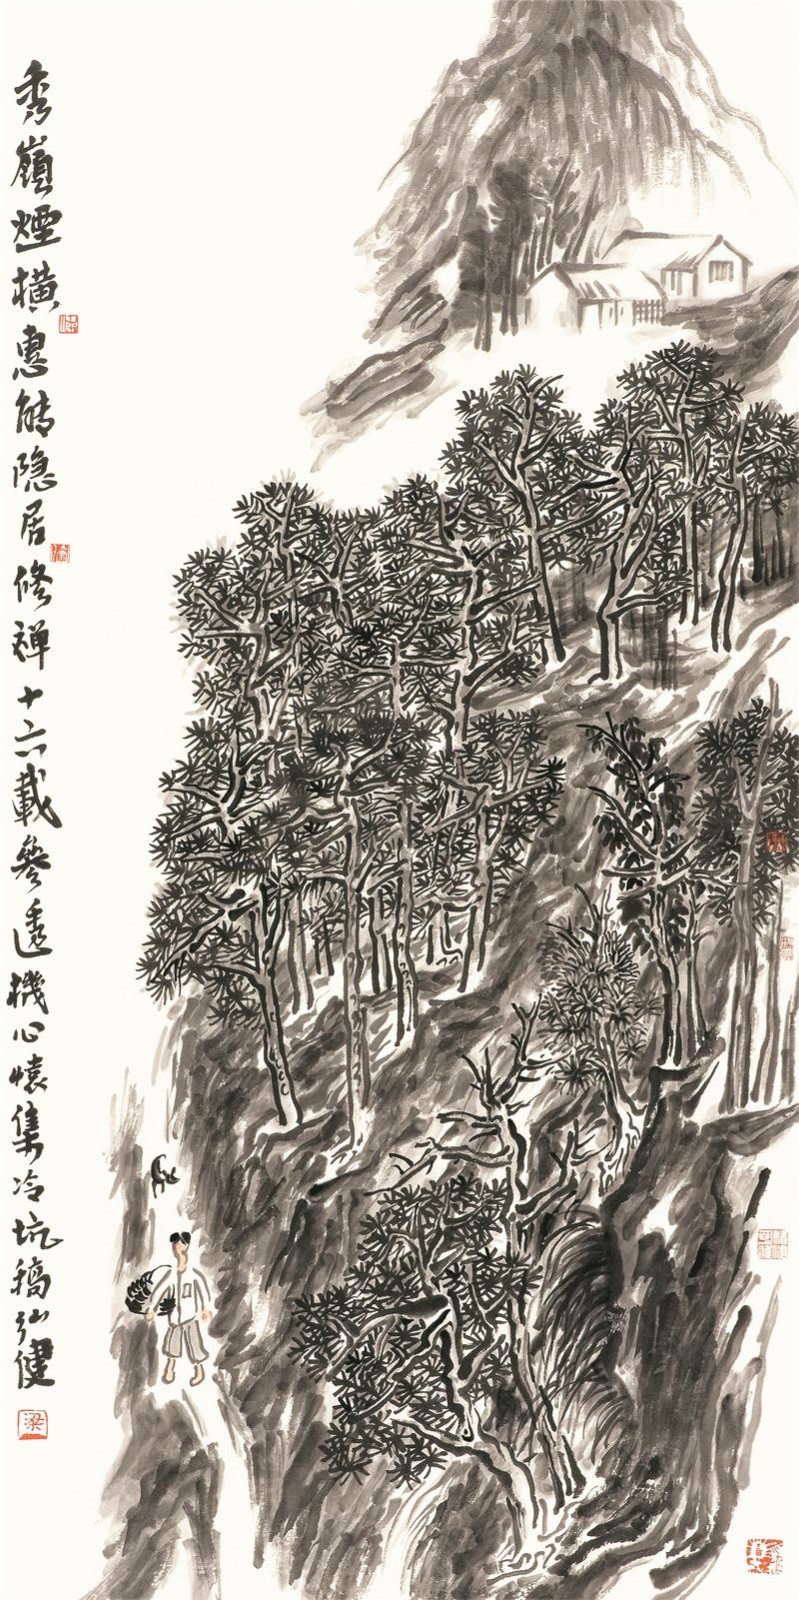 秀嶺煙橫惠能隐居修禅十六載參透機心懐集冷坑稿弘健
梁